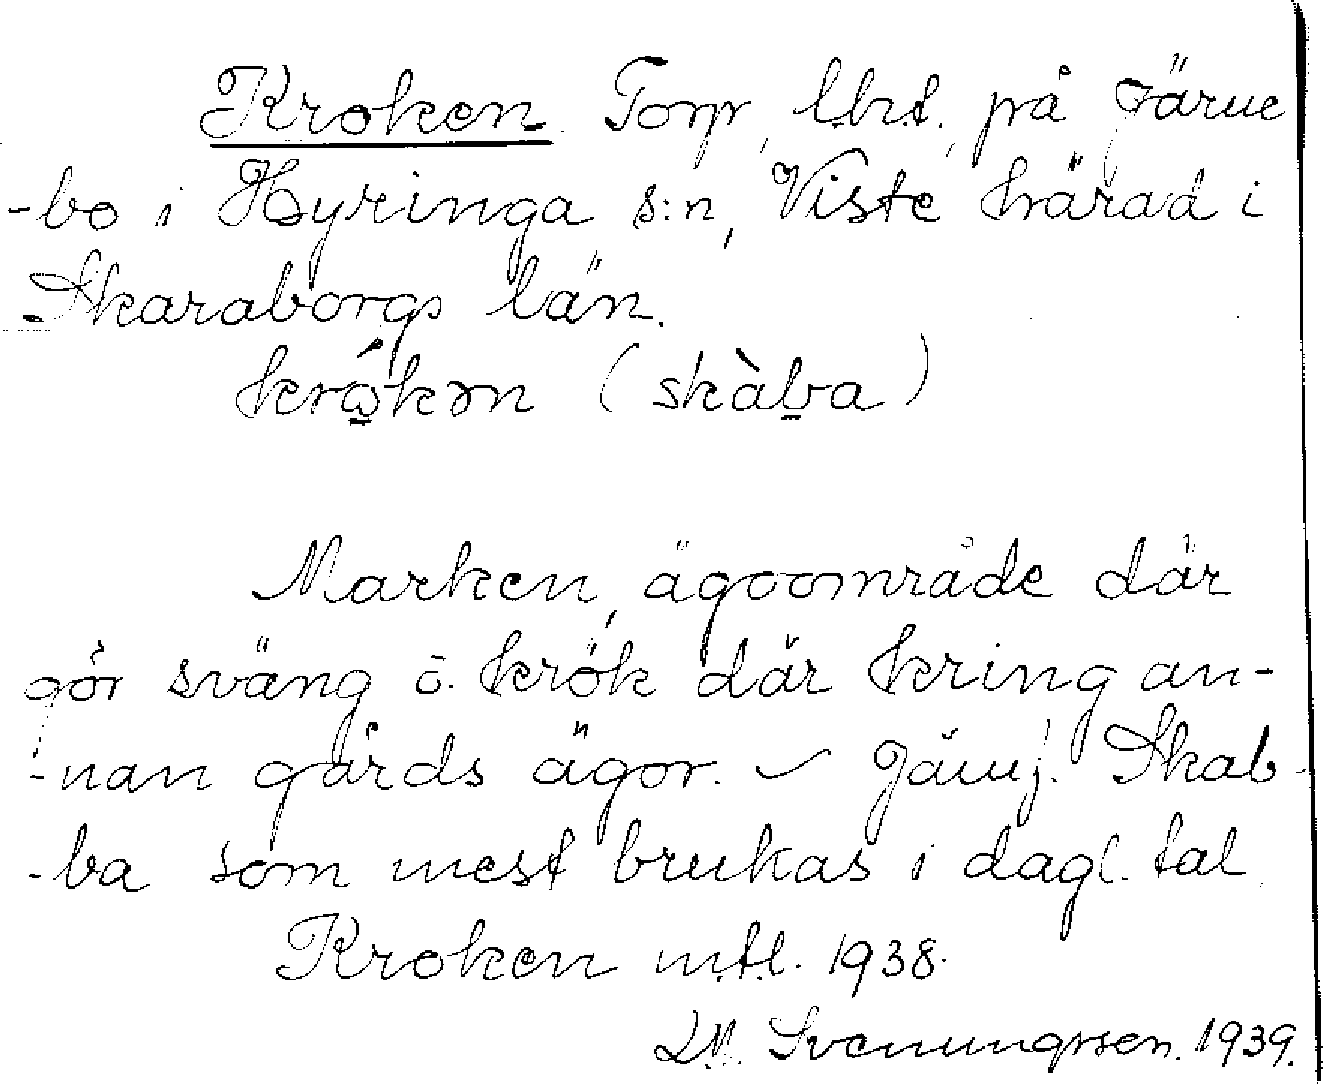 Kroken Torp, lbrt, på Järne
-bo i Hyringa s:n, Viste härad i
Skaraborgs län.
krókən (skàba)
Marken, ägoområde där
gör sväng o. krök där kring an-
-nan gårds ägor. ✓ Jämf. Skab-
-ba som mest brukas i dagl. tal.
Kroken mtl. 1938.
Svenungssen. 1939.